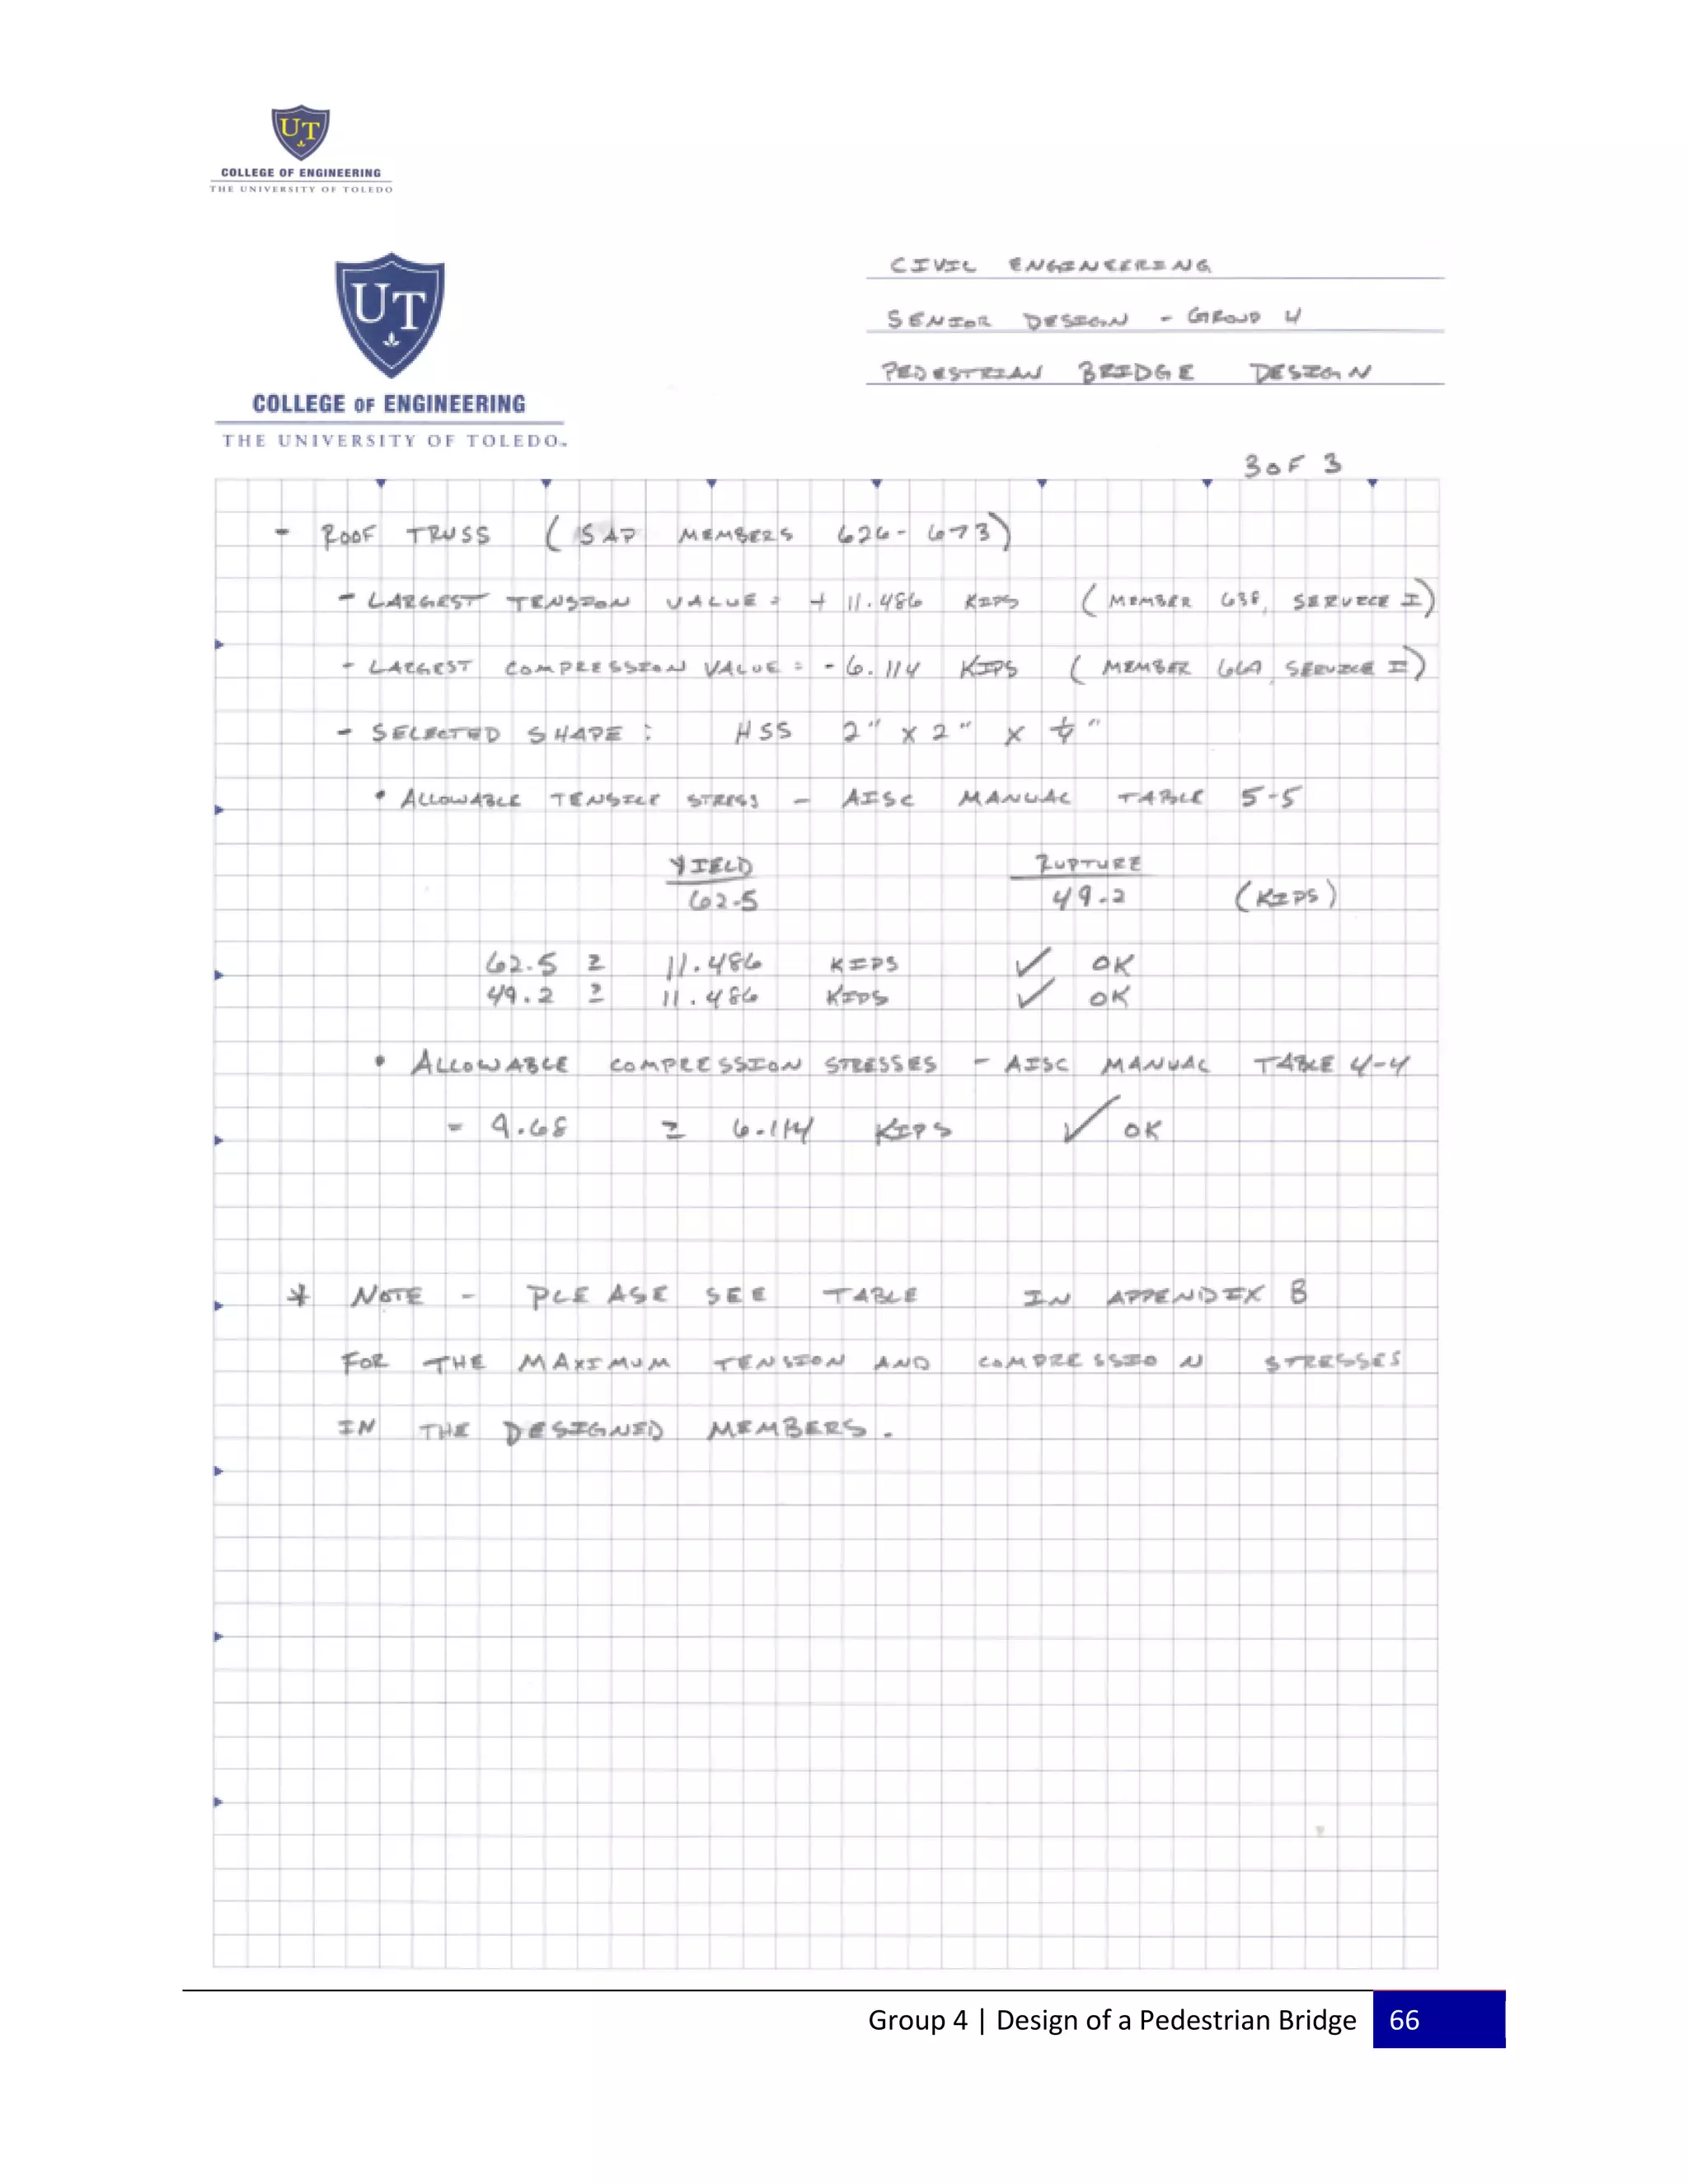 UT
COLLEGE OF ENGINEERING
THE UNIVERSITY OF TOLEDO
UT
COLLEGE OF ENGINEERING
THE UNIVERSITY OF TOLEDO
CIVIL ENGINEERING
SENIOR DESIGN - GROUP 4
PEDESTRIAN BRIDGE DESIGN
3 OF 3
- ROOF TRUSS (SAP MEMBERS 626-673)
- LARGEST TENSION VALUE = + 11.486 KIPS (MEMBER 638, SERVICE I)
- LARGEST COMPRESSION VALUE = - 6.114 KIPS (MEMBER SERVICE II)
- SELECTED SHAPE : HSS 2" x 2" x 1/4"
• ALLOWABLE TENSILE STRESS - AISC MANUAL TABLE 5-5
YIELD RUPTURE
62.5 49.2 (KIPS)
62.5 ≥ 11.486 KIPS ✓ OK
49.2 ≥ 11.486 KIPS ✓ OK
• ALLOWABLE COMPRESSION STRESSES - AISC MANUAL TABLE 4-4
= 9.68 ≥ 6.114 KIPS ✓ OK
* NOTE - PLEASE SEE TABLE IN APPENDIX B
FOR THE MAXIMUM TENSION AND COMPRESSION STRESSES
IN THE DESIGNED MEMBERS.
Group 4 | Design of a Pedestrian Bridge 66